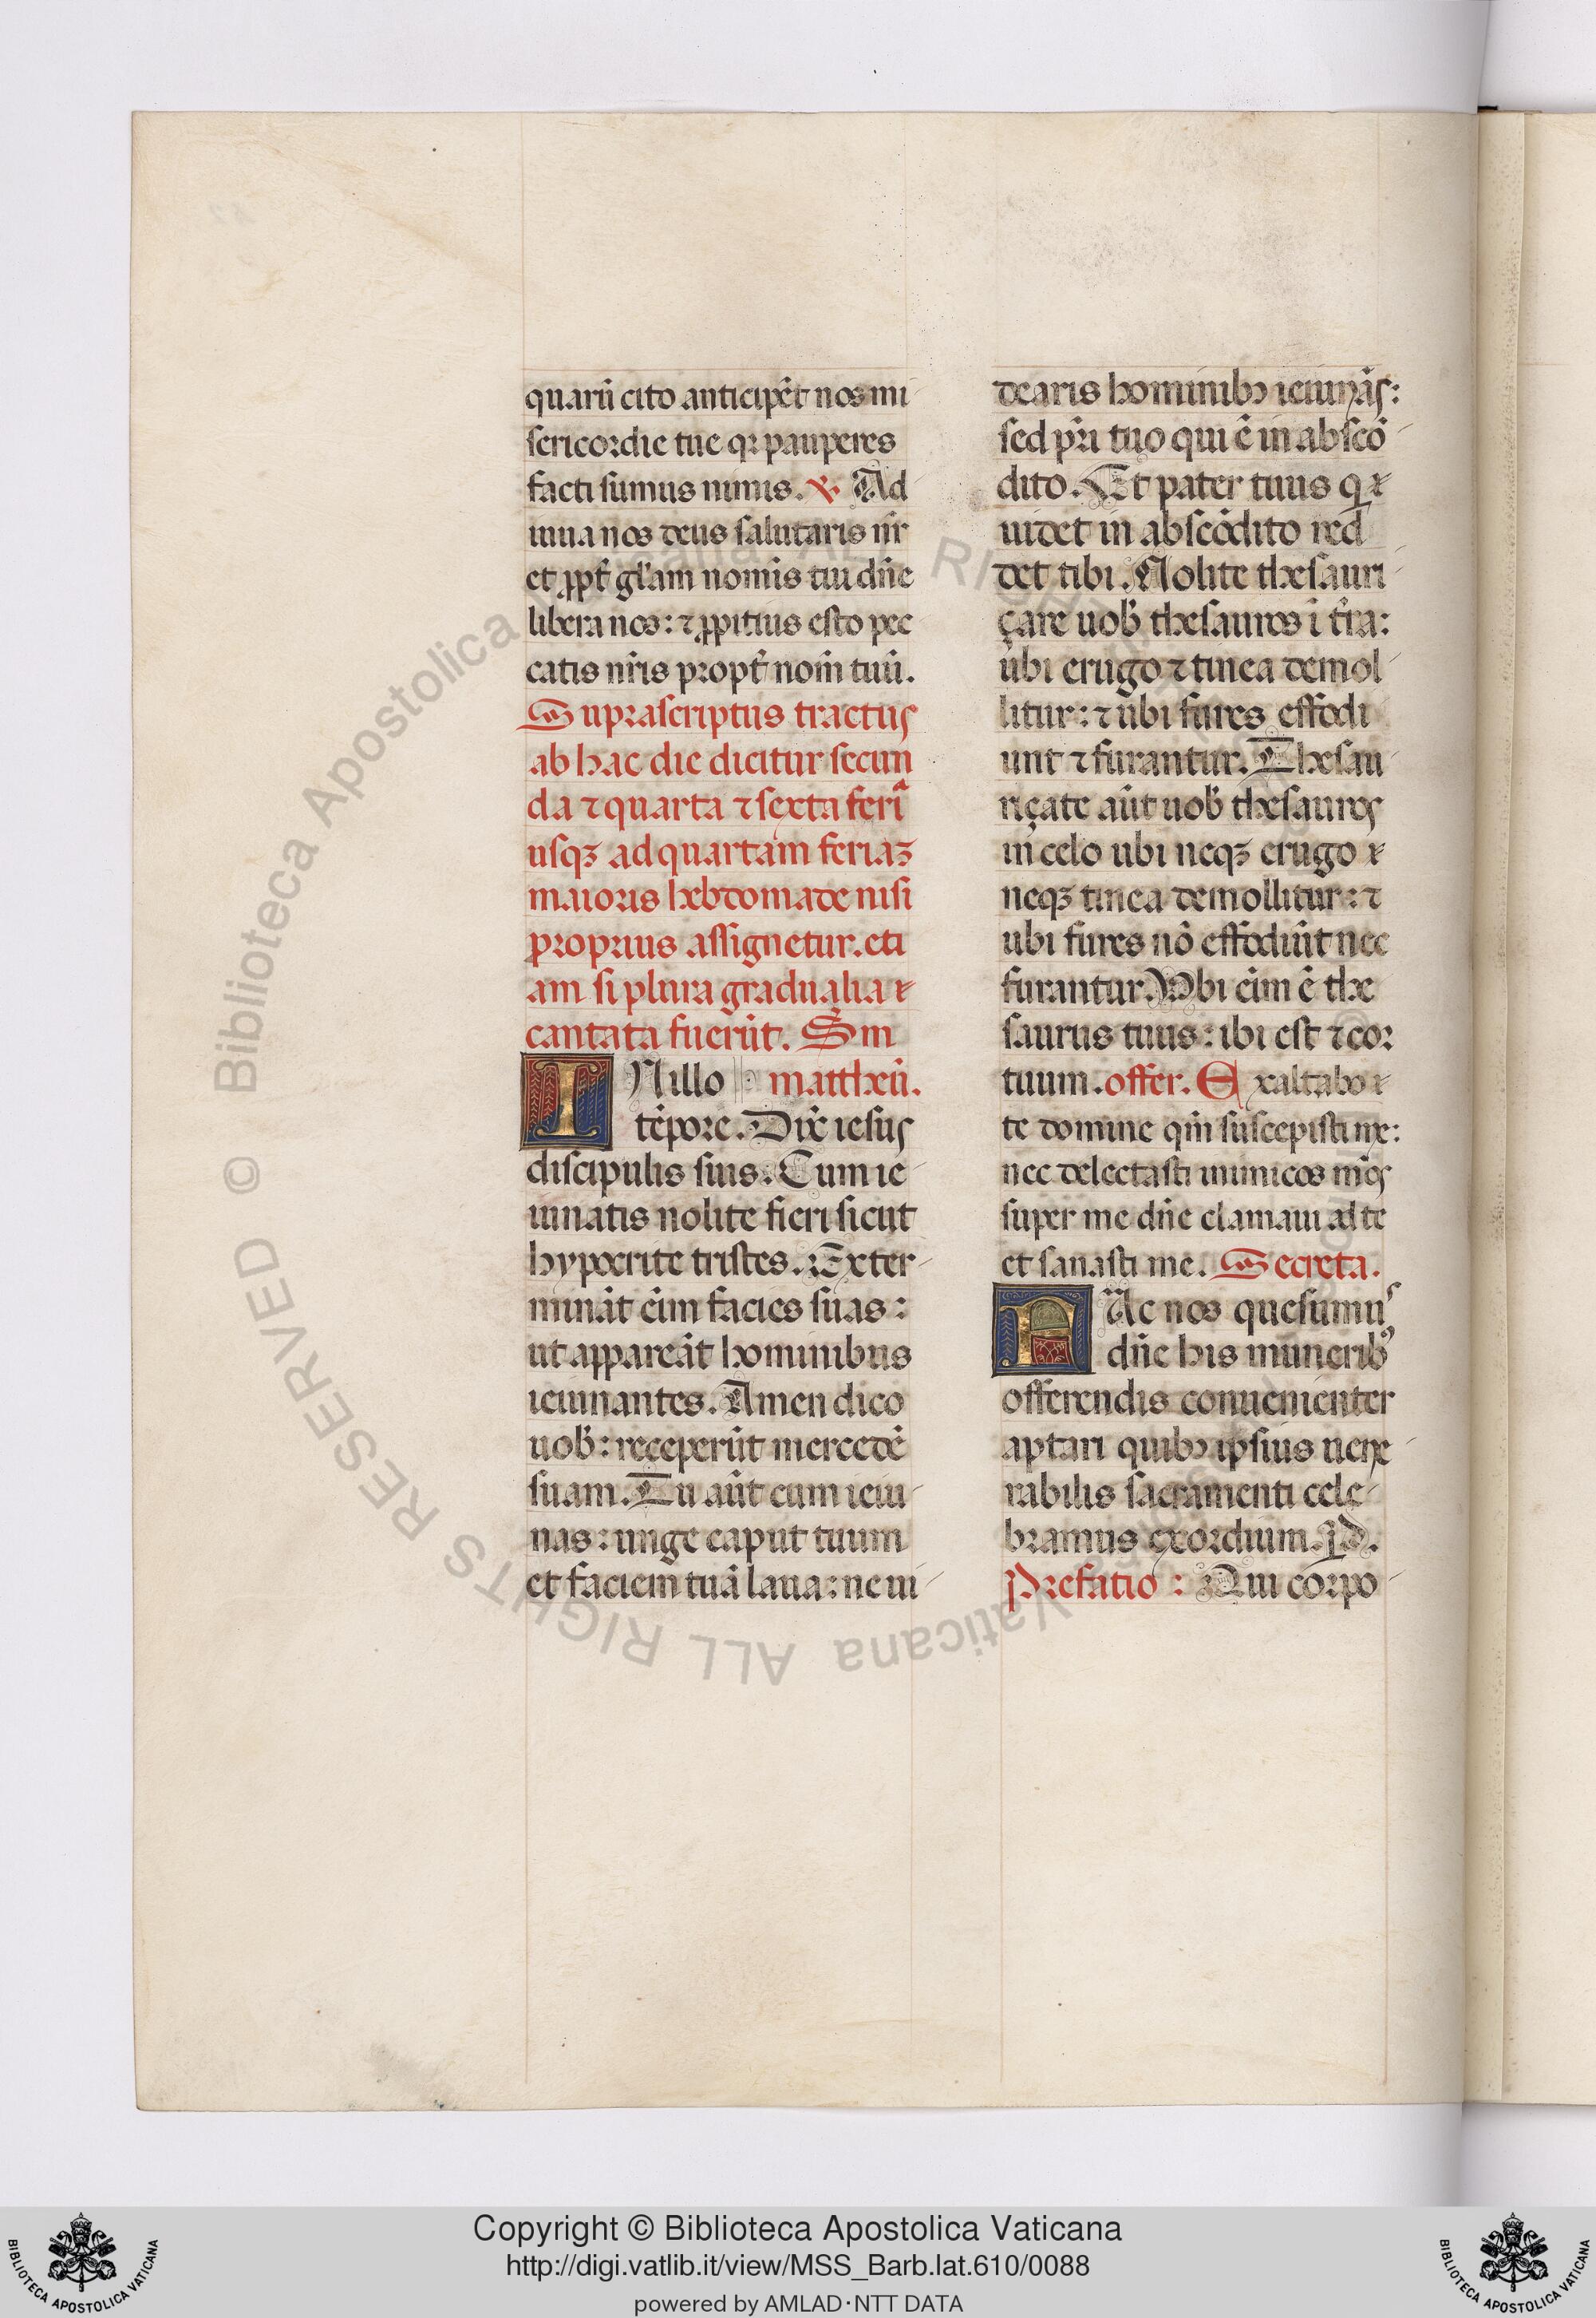 quarū cito anticipēt nos mi
sericordie tue qꝛ pauperes
facti sumus nimis. ℣. Ad
iuua nos deus salutaris nr̄
et ꝓpt̄ gl̄am nomīs tui dn̄e
libera nos: ⁊ ꝓpitius esto pec
catis nr̄is propt̄ nom̄ tuū.
Suprascriptus tractus
ab hac die dicitur secun
da ⁊ quarta ⁊ sexta feria
usqꝫ ad quartam feriaꝫ
maioris hebdomade nisi
proprius assignetur. eti
am si plura gradualia
cantata fuerūt. Sm
IN illo mattheū.
tēpore. Dix̄ iesus
discipulis suis. Cum ie
iunatis nolite fieri sicut
hypocrite tristes. Exter
mināt eīm facies suas:
ut appareāt hominibus
ieiunantes. Amen dico
uob̄: receperūt mercedē
suam. Tu aūt cum ieiu
nas: unge caput tuum
et faciem tuā laua: ne ui
dearis hominibꝫ ieiunās:
sed pr̄i tuo qui ē in abscō
dito. Et pater tuus q
uidet in abscōdito red
det tibi. Nolite thesauri
çare uob̄ thesauros ī tr̄a:
ubi erugo ⁊ tinea demol
litur: ⁊ ubi fures effodi
unt ⁊ furantur. Thesau
riçate aūt uob̄ thesauros
in celo ubi neqꝫ erugo
neqꝫ tinea demollitur: ⁊
ubi fures nō effodiūt nec
furantur. Vbi eīm ē the
saurus tuus: ibi est ⁊ cor
tuum. offer. Exaltabo
te domine qm̄ suscepisti me:
nec delectasti inimicos mēos
super me dn̄e clamaui ad te
et sanasti me. Secreta.
FAc nos quesumus
dn̄e his munerib9
offerendis conuenienter
aptari quibꝫ ipsius uene
rabilis sacramenti cele
bramus exordium. P. d.
Prefatio: Qui corpo
Copyright © Biblioteca Apostolica Vaticana
http://digi.vatlib.it/view/MSS_Barb.lat.610/0088
powered by AMLAD·NTT DATA
BIBLIOTECA APOSTOLICA VATICANA
BIBLIOTECA APOSTOLICA VATICANA
© Biblioteca Apostolica Vaticana ALL RIGHTS RESERVED